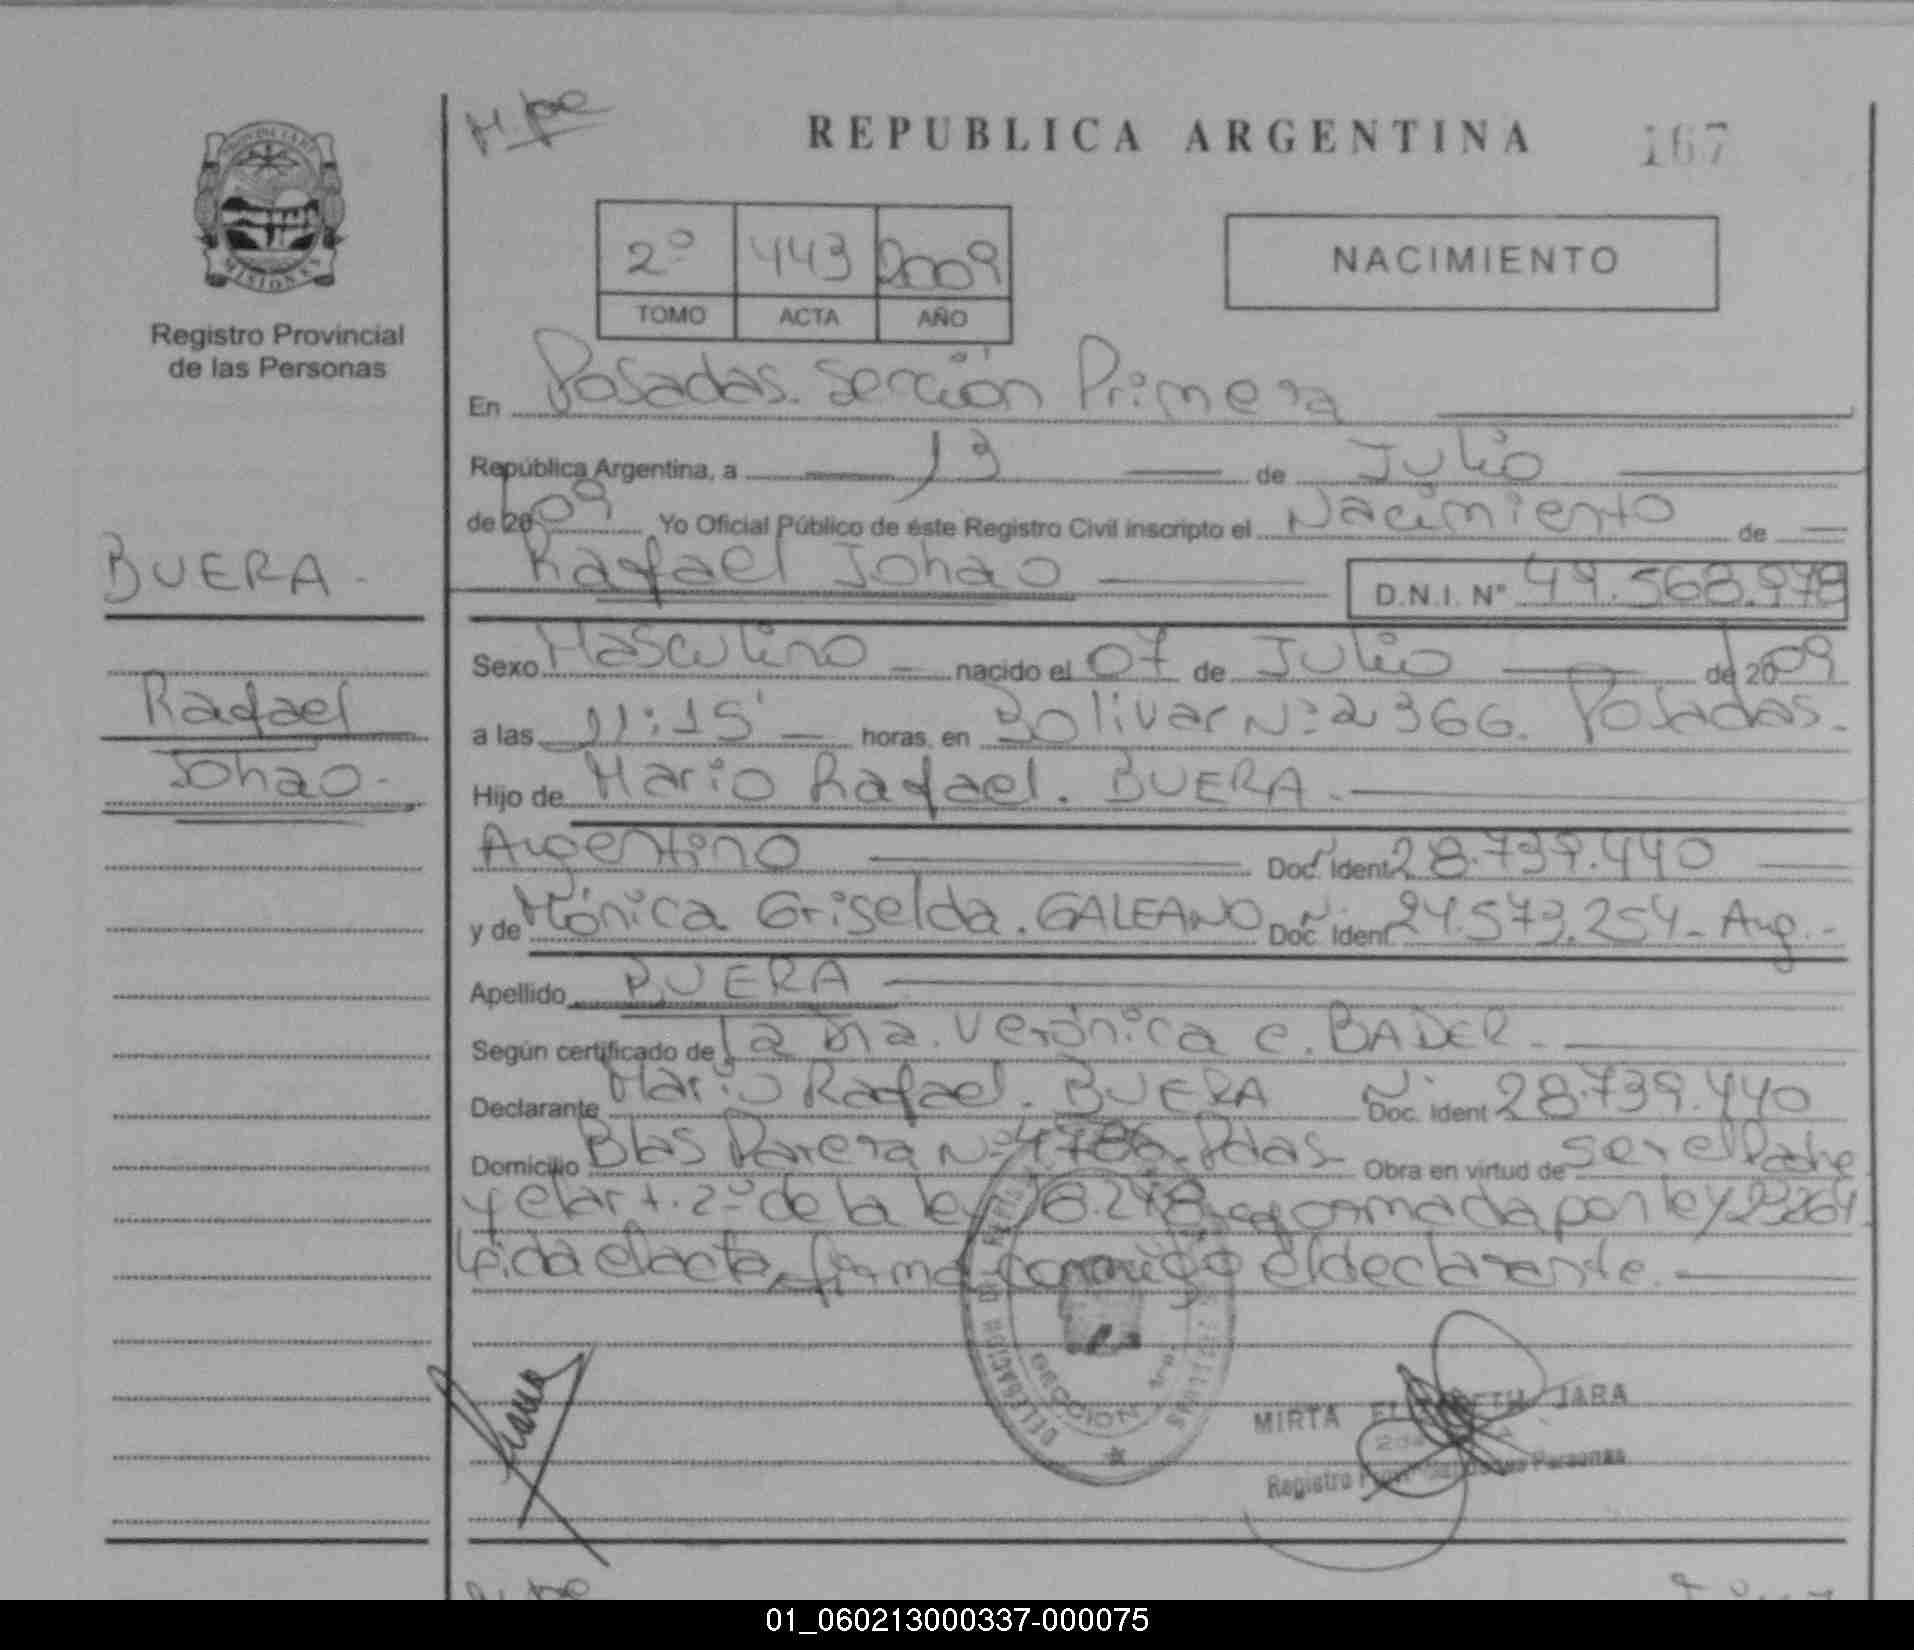 REPUBLICA ARGENTINA
167
2º 443 2009
TOMO ACTA AÑO
NACIMIENTO
MISIONES
Registro Provincial
de las Personas
En Posadas. Sección Primera
República Argentina, a 13 de Julio
de 2009 Yo Oficial Público de éste Registro Civil inscripto el Nacimiento de
Rafael Johao
D.N.I. Nº 49.568.978
BUERA.
Rafael
Johao.
Sexo Masculino nacido el 07 de Julio de 2009
a las 11:15' horas, en Bolivar Nº 2366. Posadas.
Hijo de Mario Rafael. BUERA.
Argentino Doc. Ident 28.739.440
y de Mónica Griselda. GALEANO Doc. Ident 24.573.254. Arg.
Apellido BUERA
Según certificado de la Dra. Verónica C. BADER.
Declarante Mario Rafael. BUERA Doc. Ident 28.739.440
Domicilio Blas Parera Nº 4786. Pdas. Obra en virtud de ser el Padre
y el art. 2º de la ley 18.248 reformada por ley 23264.
Leida el acta, firma conmigo el declarante.
DELEGACION
SECCION 1ra.
MIRTA ELIZABETH JARA
Registro Provincial de las Personas
01_060213000337-000075